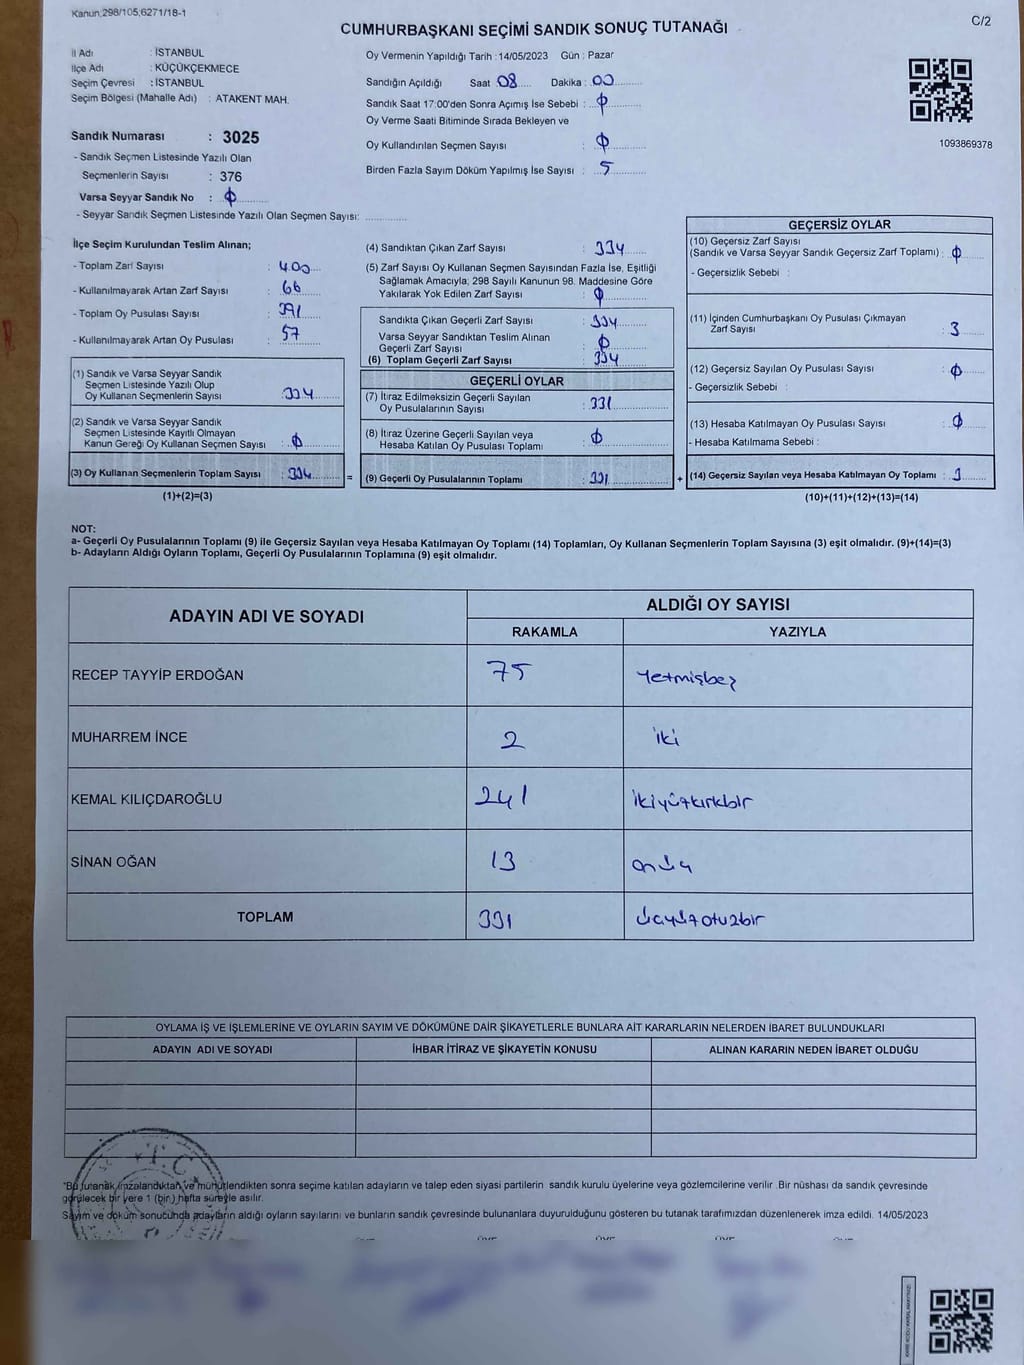 Kanun;298/105,6271/18-1
C/2
CUMHURBAŞKANI SEÇİMİ SANDIK SONUÇ TUTANAĞI
İl Adı : İSTANBUL
İlçe Adı : KÜÇÜKÇEKMECE
Seçim Çevresi : İSTANBUL
Seçim Bölgesi (Mahalle Adı) : ATAKENT MAH.
Oy Vermenin Yapıldığı Tarih : 14/05/2023 Gün : Pazar
Sandığın Açıldığı Saat 08 Dakika : 00
Sandık Saat 17:00'den Sonra Açımış İse Sebebi : φ
Oy Verme Saati Bitiminde Sırada Bekleyen ve
Oy Kullandırılan Seçmen Sayısı : φ
Birden Fazla Sayım Döküm Yapılmış İse Sayısı : 5
1093869378
Sandık Numarası : 3025
- Sandık Seçmen Listesinde Yazılı Olan
Seçmenlerin Sayısı : 376
Varsa Seyyar Sandık No : φ
- Seyyar Sandık Seçmen Listesinde Yazılı Olan Seçmen Sayısı:
İlçe Seçim Kurulundan Teslim Alınan;
- Toplam Zarf Sayısı : 400
- Kullanılmayarak Artan Zarf Sayısı : 66
- Toplam Oy Pusulası Sayısı : 391
- Kullanılmayarak Artan Oy Pusulası : 57
(1) Sandık ve Varsa Seyyar Sandık
Seçmen Listesinde Yazılı Olup
Oy Kullanan Seçmenlerin Sayısı : 334
(2) Sandık ve Varsa Seyyar Sandık
Seçmen Listesinde Kayıtlı Olmayan
Kanun Gereği Oy Kullanan Seçmen Sayısı : φ
(3) Oy Kullanan Seçmenlerin Toplam Sayısı : 334
=
(1)+(2)=(3)
(4) Sandıktan Çıkan Zarf Sayısı : 334
(5) Zarf Sayısı Oy Kullanan Seçmen Sayısından Fazla İse, Eşitliği
Sağlamak Amacıyla; 298 Sayılı Kanunun 98. Maddesine Göre
Yakılarak Yok Edilen Zarf Sayısı : φ
Sandıkta Çıkan Geçerli Zarf Sayısı : 334
Varsa Seyyar Sandıktan Teslim Alınan
Geçerli Zarf Sayısı : φ
(6) Toplam Geçerli Zarf Sayısı : 334
GEÇERLİ OYLAR
(7) İtiraz Edilmeksizin Geçerli Sayılan
Oy Pusulalarının Sayısı : 331
(8) İtiraz Üzerine Geçerli Sayılan veya
Hesaba Katılan Oy Pusulası Toplamı : φ
(9) Geçerli Oy Pusulalarının Toplamı : 331
+
GEÇERSİZ OYLAR
(10) Geçersiz Zarf Sayısı
(Sandık ve Varsa Seyyar Sandık Geçersiz Zarf Toplamı) : φ
- Geçersizlik Sebebi :
(11) İçinden Cumhurbaşkanı Oy Pusulası Çıkmayan
Zarf Sayısı : 3
(12) Geçersiz Sayılan Oy Pusulası Sayısı : φ
- Geçersizlik Sebebi :
(13) Hesaba Katılmayan Oy Pusulası Sayısı : φ
- Hesaba Katılmama Sebebi :
(14) Geçersiz Sayılan veya Hesaba Katılmayan Oy Toplamı : 3
(10)+(11)+(12)+(13)=(14)
NOT:
a- Geçerli Oy Pusulalarının Toplamı (9) ile Geçersiz Sayılan veya Hesaba Katılmayan Oy Toplamı (14) Toplamları, Oy Kullanan Seçmenlerin Toplam Sayısına (3) eşit olmalıdır. (9)+(14)=(3)
b- Adayların Aldığı Oyların Toplamı, Geçerli Oy Pusulalarının Toplamına (9) eşit olmalıdır.
ADAYIN ADI VE SOYADI
ALDIĞI OY SAYISI
RAKAMLA YAZIYLA
RECEP TAYYİP ERDOĞAN 75 Yetmişbeş
MUHARREM İNCE 2 iki
KEMAL KILIÇDAROĞLU 241 ikiyüzkırkbir
SİNAN OĞAN 13 onüç
TOPLAM 331 üçyüzotuzbir
OYLAMA İŞ VE İŞLEMLERİNE VE OYLARIN SAYIM VE DÖKÜMÜNE DAİR ŞİKAYETLERLE BUNLARA AİT KARARLARIN NELERDEN İBARET BULUNDUKLARI
ADAYIN ADI VE SOYADI İHBAR İTİRAZ VE ŞİKAYETİN KONUSU ALINAN KARARIN NEDEN İBARET OLDUĞU
T.C
*Bu tutanak imzalandıktan ve mühürlendikten sonra seçime katılan adayların ve talep eden siyasi partilerin sandık kurulu üyelerine veya gözlemcilerine verilir .Bir nüshası da sandık çevresinde
görülecek bir yere 1 (bir) hafta süreyle asılır.
Sayım ve döküm sonucunda adayların aldığı oyların sayılarını ve bunların sandık çevresinde bulunanlara duyurulduğunu gösteren bu tutanak tarafımızdan düzenlenerek imza edildi. 14/05/2023